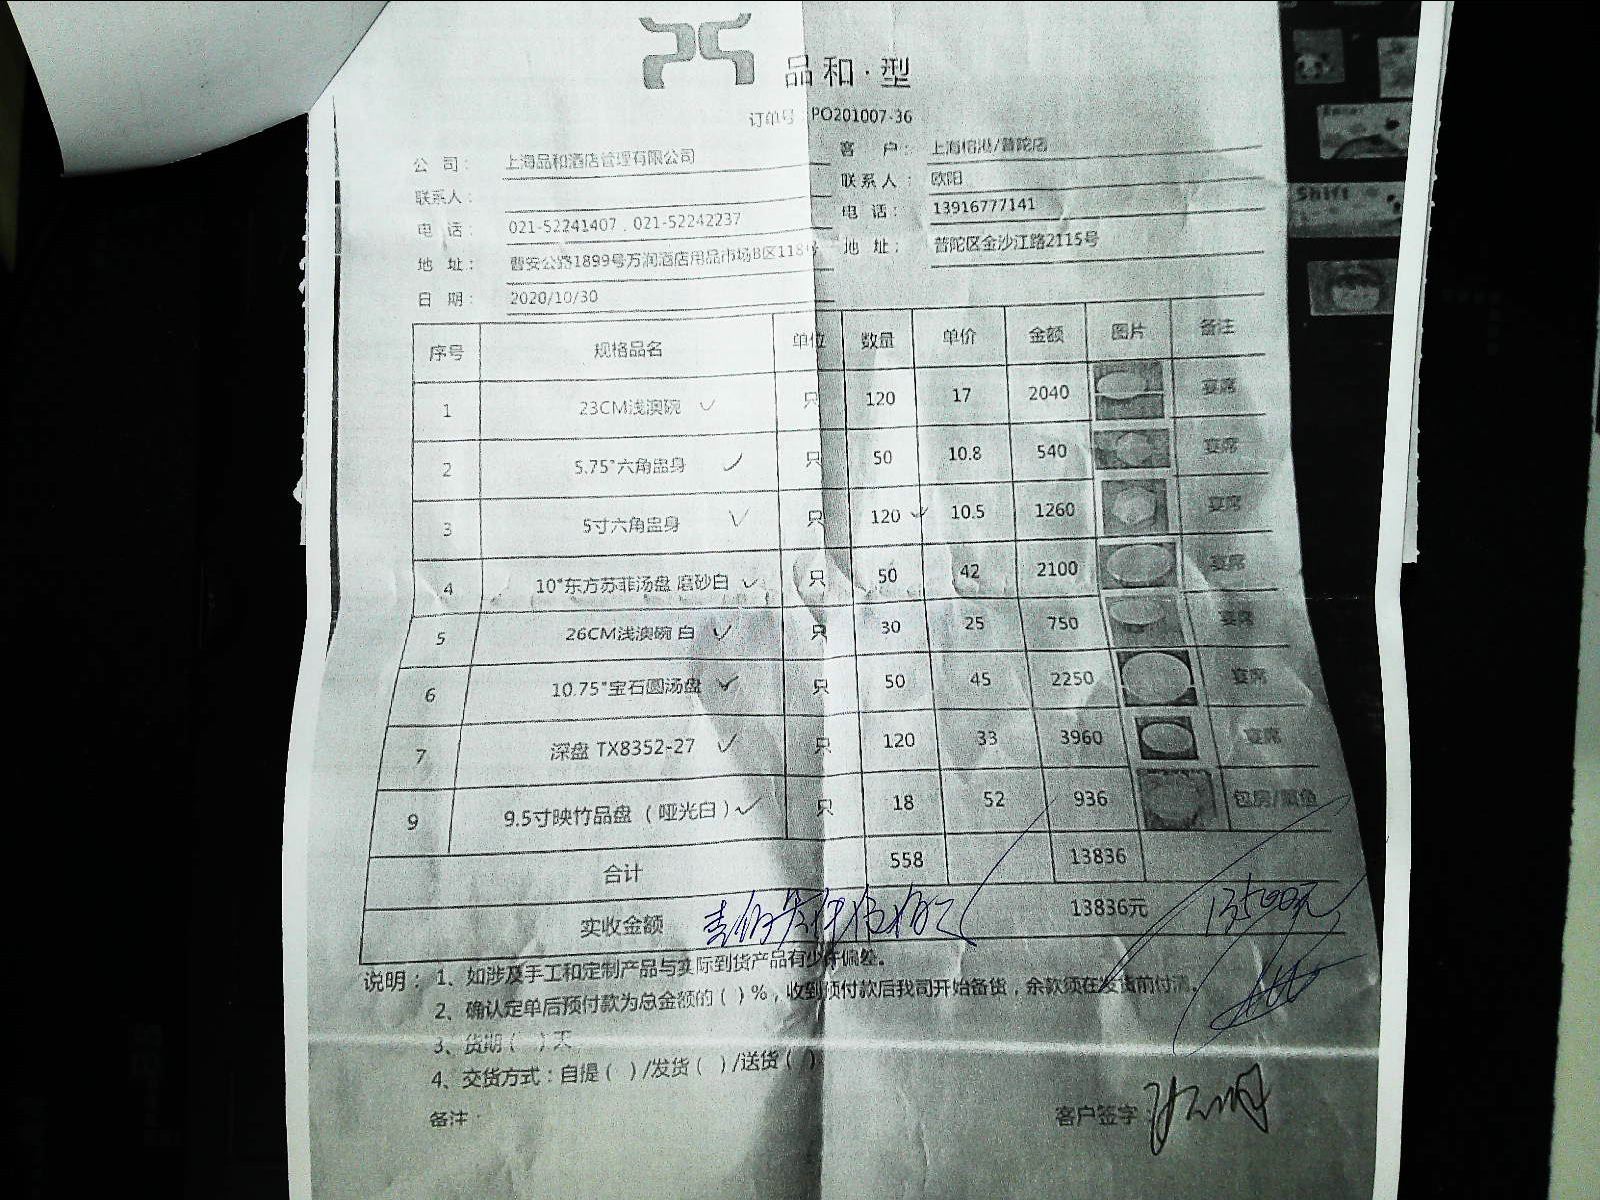 品和·型
订单号 PO201007-36
公 司: 上海品和酒店管理有限公司
客 户: 上海榕港/普陀店
联系人:
联系人: 欧阳
电 话: 021-52241407 . 021-52242237
电 话: 13916777141
地 址: 曹安公路1899号万润酒店用品市场B区118号
地 址: 普陀区金沙江路2115号
日 期: 2020/10/30
序号 规格品名 单位 数量 单价 金额 图片 备注
1 23CM浅澳碗 只 120 17 2040 宴席
2 5.75"六角盅身 只 50 10.8 540 宴席
3 5寸六角盅身 只 120 10.5 1260 宴席
4 10"东方苏菲汤盘 磨砂白 只 50 42 2100 宴席
5 26CM浅澳碗 白 只 30 25 750 宴席
6 10.75"宝石圆汤盘 只 50 45 2250 宴席
7 深盘 TX8352-27 只 120 33 3960 宴席
9 9.5寸映竹品盘(哑光白) 只 18 52 936 包房/
合计 558 13836
实收金额 13836元 13500元
说明:1、如涉及手工和定制产品与实际到货产品有少许偏差。
2、确认定单后预付款为总金额的( )%,收到预付款后我司开始备货,余款须在发货前付清。
3、货期( )天
4、交货方式:自提( )/发货( )/送货( )
备注:
客户签字
Shift